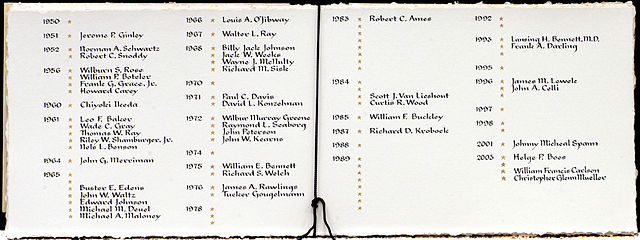 1950
1951 Jerome P. Ginley
1952 Norman A. Schwartz
Robert C. Snoddy
1956 Wilburn S. Rose
William P. Boteler
Frank G. Grace, Jr.
Howard Carey
1960 Chiyoki Ikeda
1961 Leo F. Baker
Wade C. Gray
Thomas W. Ray
Riley W. Shamburger, Jr.
Nels L. Benson
1964 John G. Merriman
1965
Buster E. Edens
John W. Waltz
Edward Johnson
Michael M. Deuel
Michael A. Maloney
1966 Louis A. O'Jibway
1967 Walter L. Ray
1968 Billy Jack Johnson
Jack W. Weeks
Wayne J. McNulty
Richard M. Sisk
1970
1971 Paul C. Davis
David L. Konzelman
1972 Wilbur Murray Greene
Raymond L. Seaborg
John Peterson
John W. Kearns
1974
1975 William E. Bennett
Richard S. Welch
1976 James A. Rawlings
Tucker Gougelmann
1978
1983 Robert C. Ames
1984
Scott J. Van Lieshout
Curtis R. Wood
1985 William F. Buckley
1987 Richard D. Krobock
1988
1989
1992
1993 Lansing H. Bennett, M.D.
Frank A. Darling
1995
1996 James M. Lewek
John A. Celli
1997
1998
2001 Johnny Micheal Spann
2003 Helge P. Boes
William Francis Carlson
Christopher Glenn Mueller